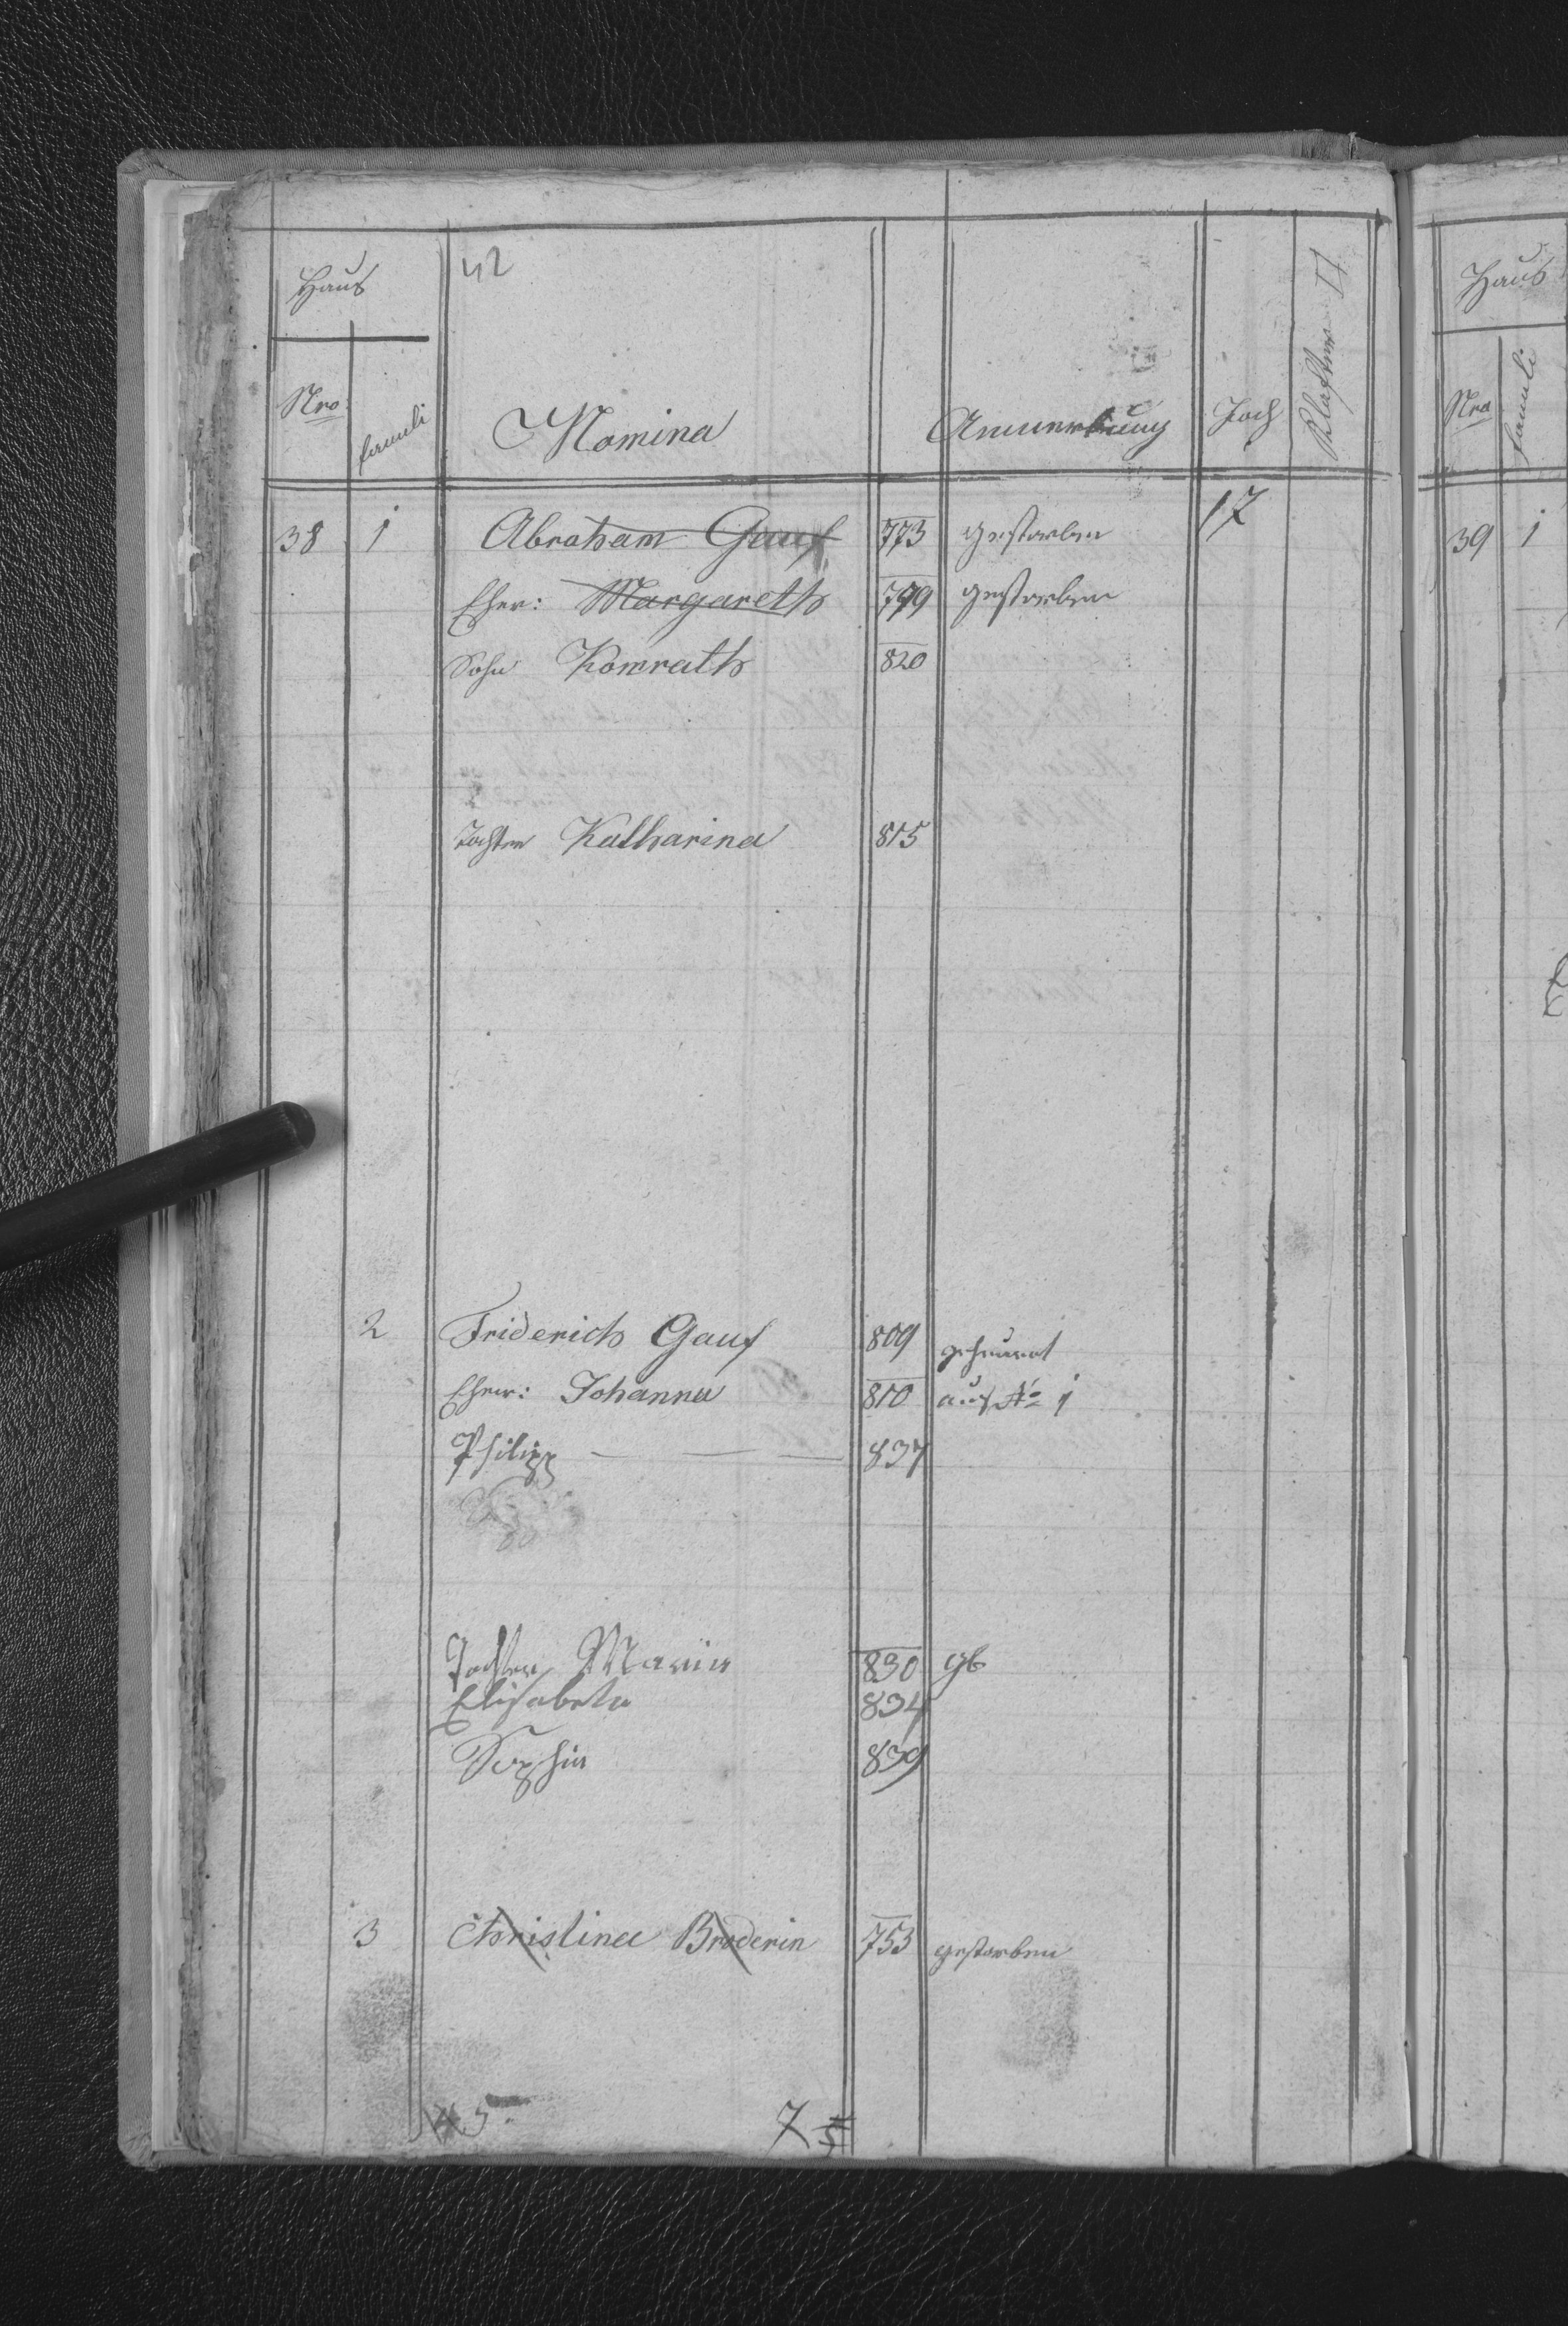 42
Haus
Nro famili Nomina Anmerkung Joch Klafter
38 1 Abraham Gauf 773 gestorben 17
Ehew: Margareth 779 gestorben
Sohn Konrath 820
Tochter Katharina 815
2 Friderich Gauf 809 geheurat
Ehew: Johanna 810 auf No 1
Philipp 837
Tochter Maria 830 gb
Elisabeta 834
Sophia 839
3 Christina Broderin 753 gestorben
5
7 5
Haus
Nro famili
39 1